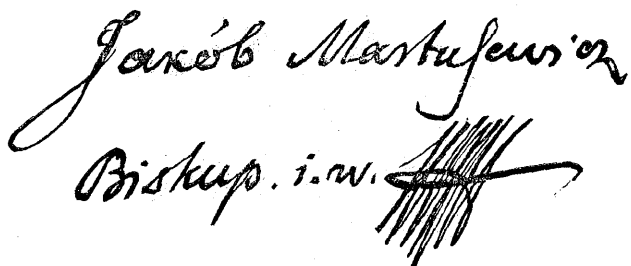 Jakób Martusewicz
Biskup. i. w.